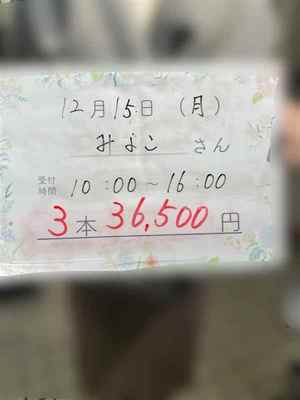 12月15日（月）
みよこ さん
受付時間 10：00～16：00
3本 36,500円